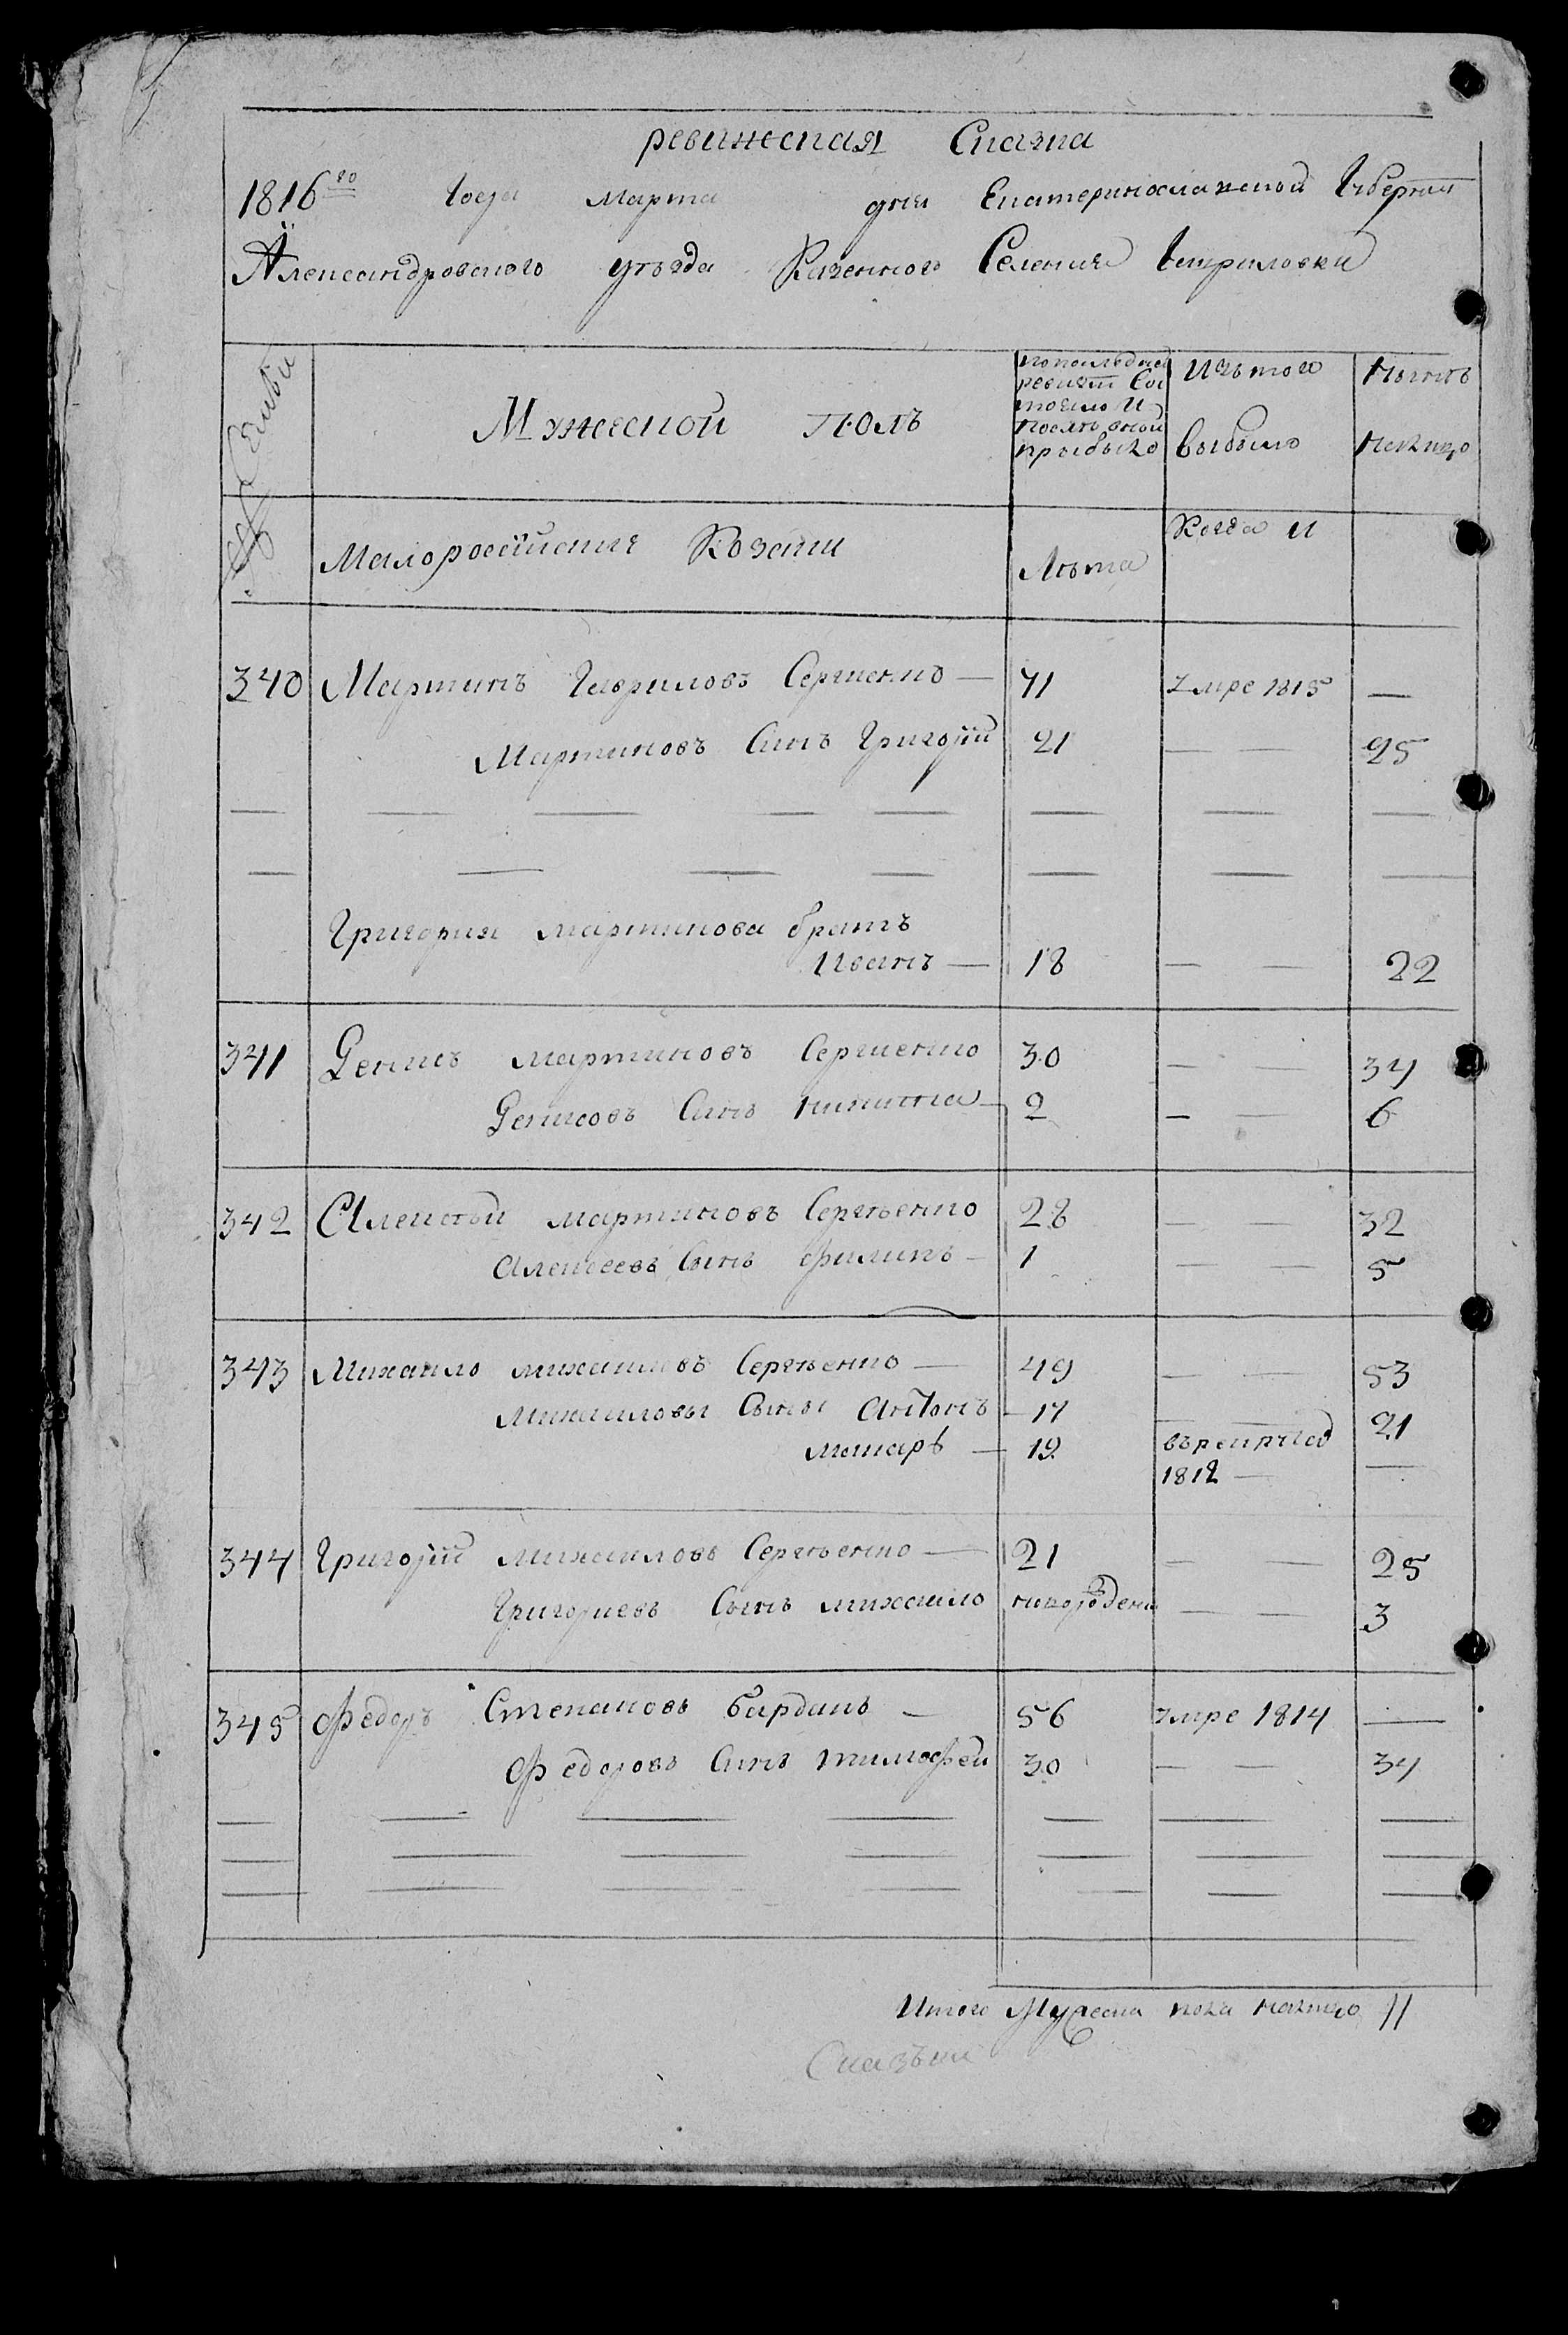 ревижская Сказка
1816го года марта дня Екатеринославской Губернии
Александровского уезда Казенного Селения Гавриловки
Семьи
Мужеской полъ
по последней
ревизии Сос
тояло и
после оной
прибыло
Изъ того
выбыло
Ныне
налицо
Малороссійские Козаки
Лѣта
Когда и
340 Мартинъ Гавриловъ Сергиенко — 71 умре 1815 —
Мартиновъ Синъ Григорій 21 — — 25
Григория мартинова братъ
Иванъ — 18 — — 22
341 Денисъ мартиновъ Сергиенко 30 — — 34
Денисовъ Синъ никита — 2 — — 6
342 Алексѣй мартиновъ Сергѣенко 28 — — 32
Алексеевъ Сынъ филипъ — 1 — — 5
343 Михайло михайловъ Сергѣенко — 49 — — 53
Михайловы Сыны Антонъ — 17 — 21
макаръ — 19 въ рекруты
1812 — —
344 Григорій михайловъ Сергѣенко — 21 — — 25
Григориевъ Сынъ михайло новорожденъ — — 3
345 Федоръ Степановъ бардакъ — 56 умре 1814 —
Федоровъ Синъ тимофей 30 — — 34
Итого Мужеска пола налицо 11